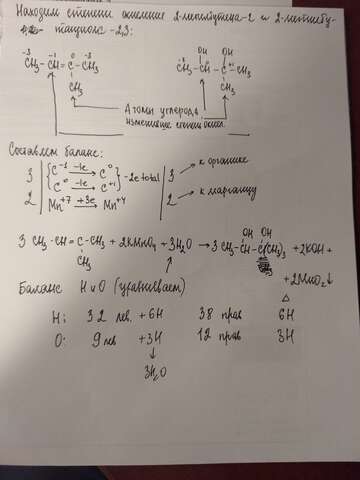 Находим степени окисления 2-метилбутена-2 и 2-метилбу-
тандиола-2,3:
-3 -1 0 -3
CH₃-CH=C-CH₃
CH₃
OH OH
-3 0 +1
CH₃-CH-C-CH₃
CH₃
Атомы углерода,
изменяющие степень окисл.
Составляем баланс:
3 C⁻¹ -1e → C⁰ 3 к органике
C⁰ -1e → C⁺¹ -2e total
2 Mn⁺⁷ +3e → Mn⁺⁴ 2 к марганцу
OH OH
3 CH₃-CH=C-CH₃ + 2KMnO₄ + 3H₂O → 3 CH₃-CH-C(CH₃)₂ + 2KOH +
CH₃
+ 2MnO₂↓
Баланс H и O (уравниваем) Δ
H: 32 лев. +6H 38 прав 6H
O: 9 лев +3H 12 прав 3H
↓
3H₂O